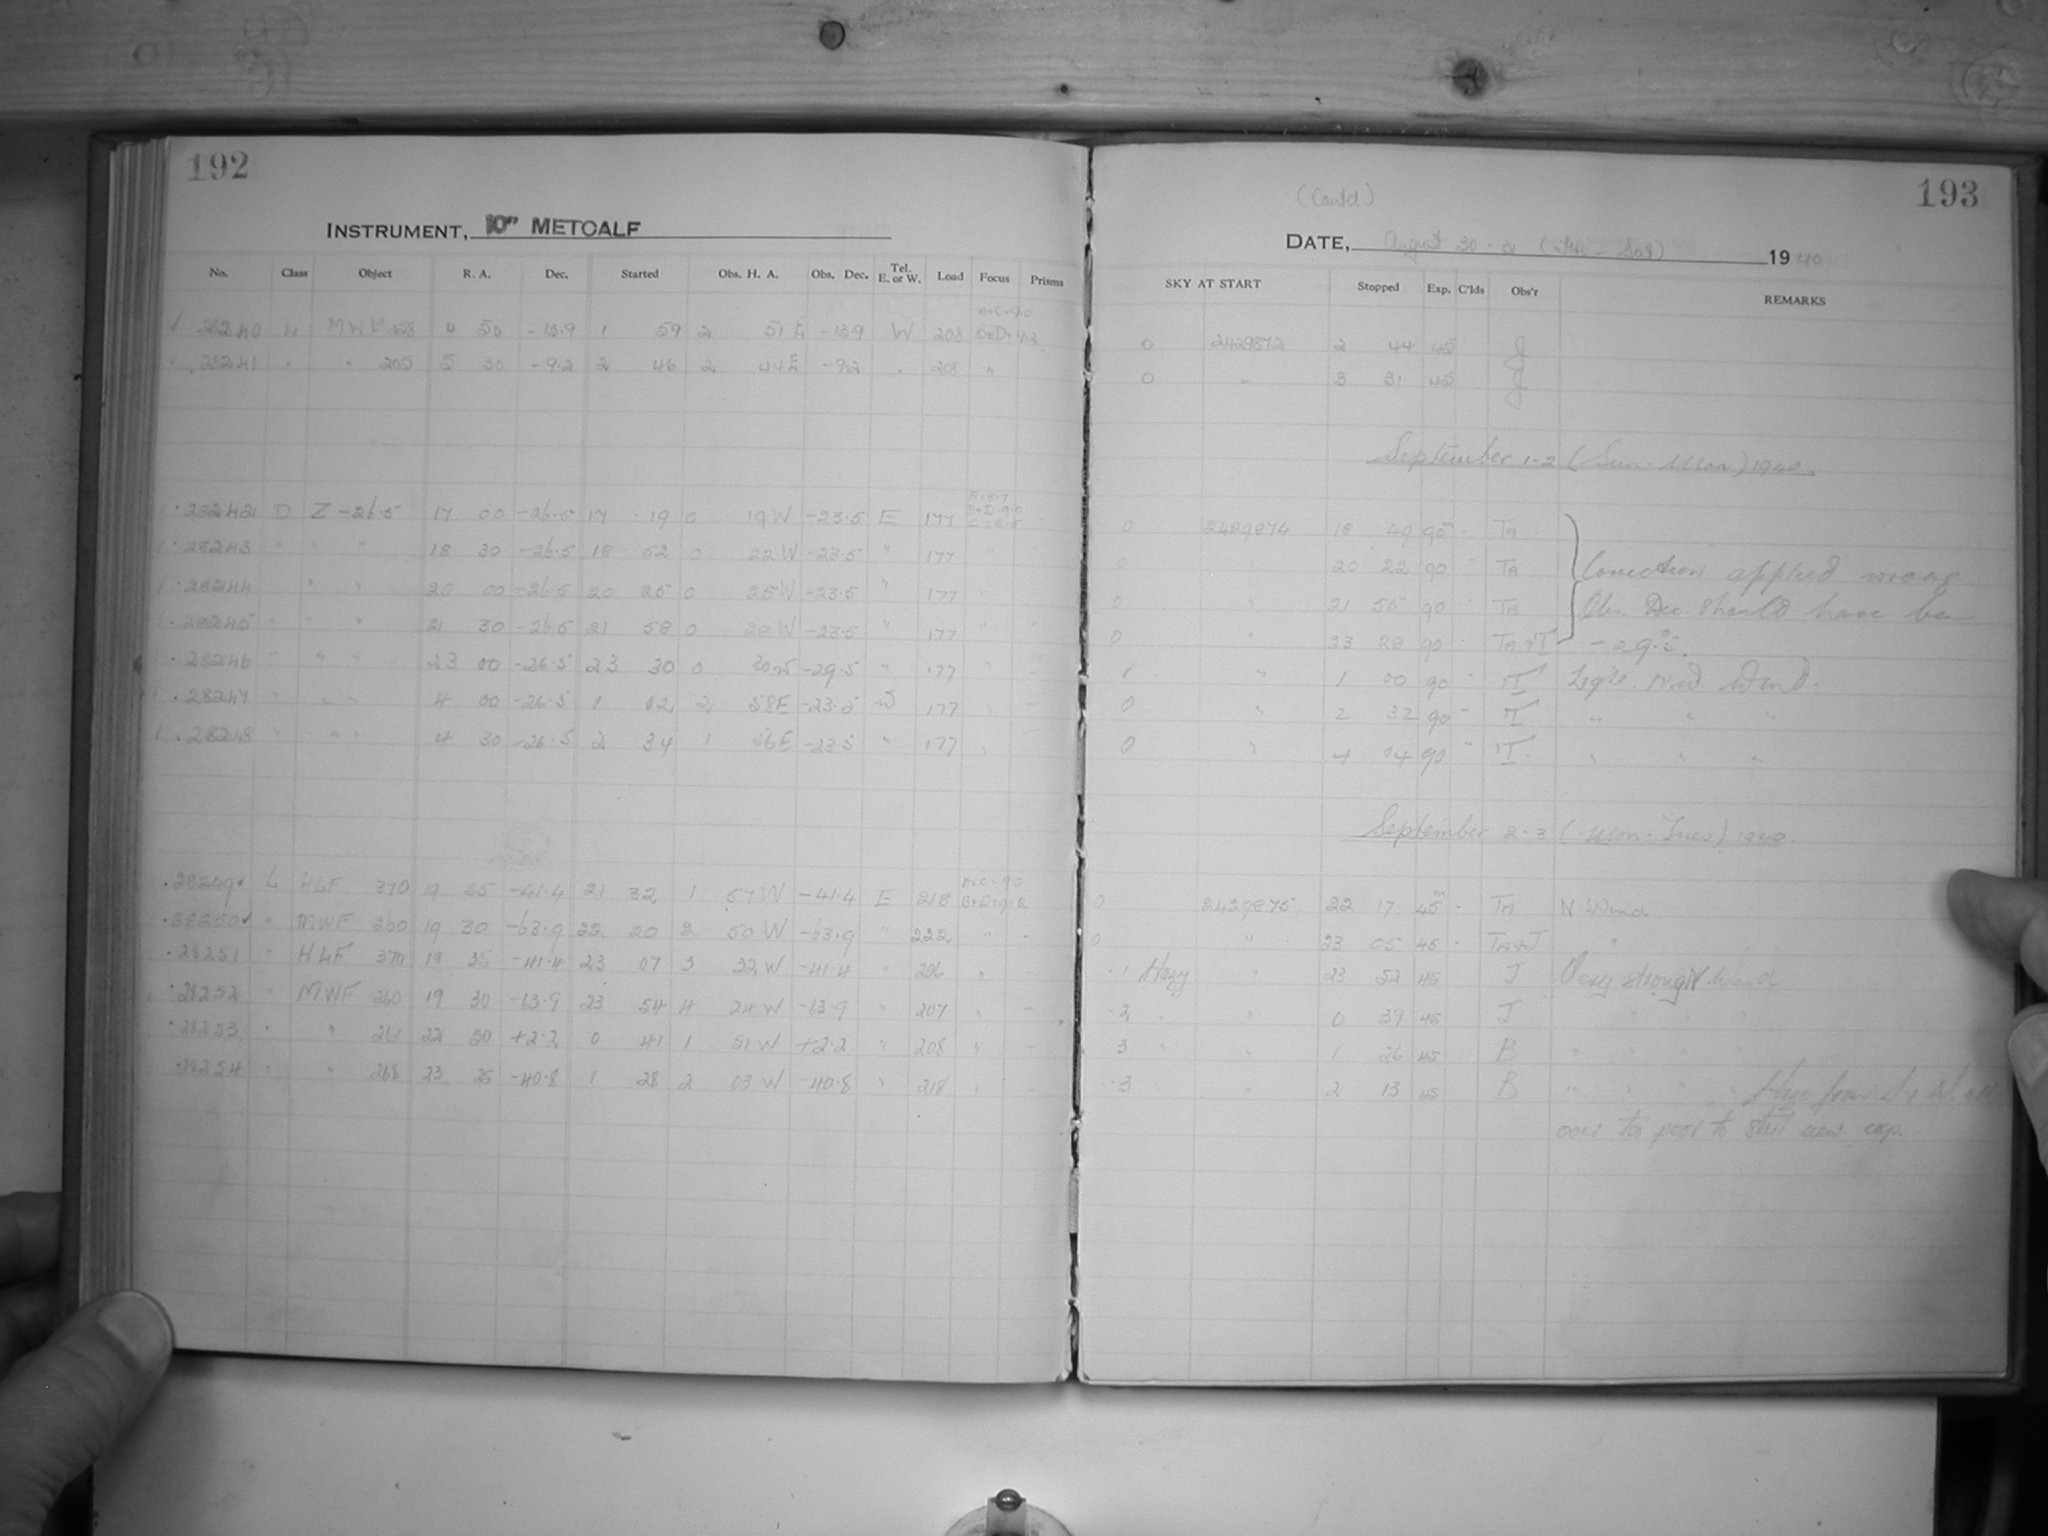 192
INSTRUMENT, 10" METCALF
No. Class Object R. A. Dec. Started Obs. H. A. Obs. Dec. Tel. E. or W. Load Focus Prisms
28240 L MWF 258 4 50 -13.9 1 59 2 51 E -13.9 W 208 A+C=9.0 B+D=9.2
28241 " " 205 5 30 -9.2 2 46 2 44 E -9.2 " 208 "
28242 D Z -26.5 17 00 -26.5 17 19 0 19 W -23.5 E 177 B+D=9.0
28243 " " " 18 30 -26.5 18 52 0 22 W -23.5 " 177 "
28244 " " 20 00 -26.5 20 25 0 25 W -23.5 " 177 "
28245 " " " 21 30 -26.5 21 58 0 28 W -23.5 " 177 "
28246 " " " 23 00 -26.5 23 30 0 30 W -29.5 " 177 "
28247 " " " 4 00 -26.5 1 02 2 58 E -23.5 W 177 "
28248 " " " 4 30 -26.5 2 34 1 56 E -23.5 " 177 "
28249 L HLF 370 19 35 -41.4 21 32 1 57 W -41.4 E 218 A+C=9.0 B+D=9.2
28250 " MWF 260 19 30 -63.9 22 20 2 50 W -63.9 " 222 " -
28251 " HLF 370 19 35 -41.4 23 07 3 32 W -41.4 " 206 " -
28252 " MWF 260 19 30 -63.9 23 54 4 24 W -63.9 " 207 " -
28253 " " 261 22 50 +2.2 0 41 1 51 W +2.2 " 208 " -
28254 " " 268 23 25 -40.8 1 28 2 03 W -40.8 " 218 " -
193
(Contd)
DATE, August 30-31 (Fri - Sat) 1940
SKY AT START Stopped Exp. C'lds Obs'r REMARKS
0 2429872 2 44 45 J
0 " 3 31 45 J
September 1-2 (Sun-Mon) 1940.
0 2429874 18 49 90 - TA
0 " 20 22 90 - TA Correction applied wrong
0 " 21 55 90 - TA Obs. Dec should have be
0 " 23 28 90 - TA+IT -29.5.
" 1 00 90 - IT Light N.W. Wind.
0 " 2 32 90 - IT " " "
0 " 4 04 90 - IT " " "
September 2-3 (Mon-Tues) 1940.
0 2429875 22 17 45 - TA N Wind
0 " 23 05 45 - TA+J "
1 Hazy " 23 52 45 J Very strong N Wind
2 " " 0 39 45 J " " "
3 " " 1 26 45 B " " " "
3 " 2 13 45 B " " " " Haze from S+W all
over too poor to start new exp.